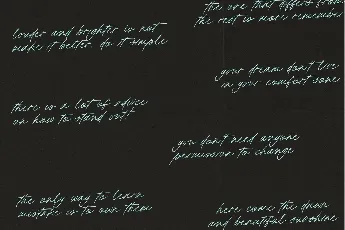 the one that differs from
the rest is more remember
louder and brighter is not
make it better. do it simple
your dream don't live
in your comfort zone
there is a lot of advice
on how to stand out!
you don't need anyone
permission to change
the only way to learn
mistake is to own them
here come the down
and beautiful sunshine